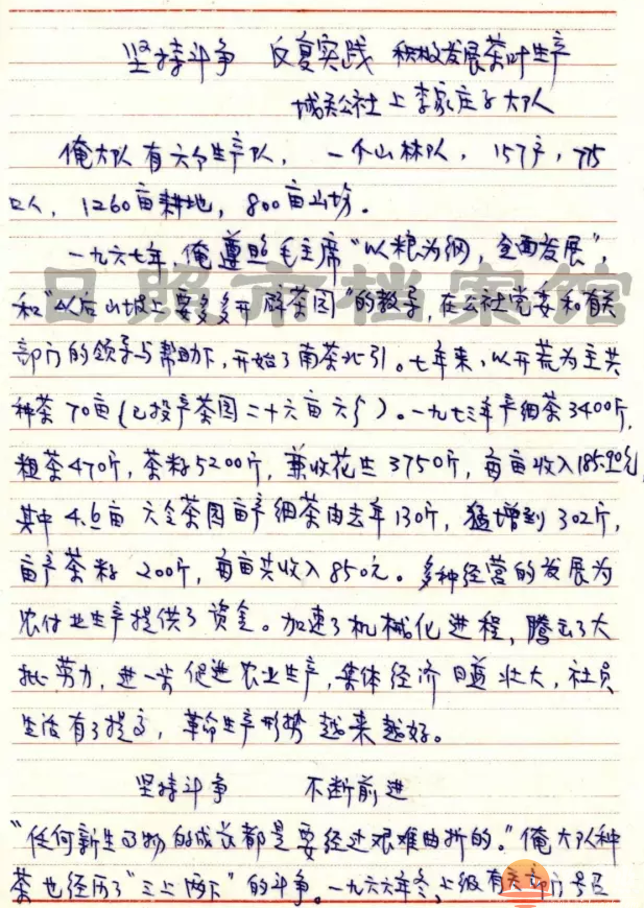 坚持斗争 反复实践 积极发展茶叶生产
城关公社上李家庄子大队
俺大队有六个生产队，一个山林队，157户，775
口人，1260亩耕地，800亩山场。
一九六七年，俺遵照毛主席“以粮为纲，全面发展”，
和“以后山坡上要多多开辟茶园”的教导，在公社党委和有关
部门的领导与帮助下，开始了南茶北引。七年来，以开荒为主共
种茶70亩（已投产茶园二十六亩六分）。一九七三年产细茶3400斤，
粗茶470斤，茶籽5200斤，兼收花生3750斤，每亩收入185.90元，
其中4.6亩 茶园亩产细茶由去年130斤，猛增到302斤，
亩产茶籽200斤，每亩共收入850元。多种经营的发展为
农付业生产提供了资金。加速了机械化进程，腾出了大
批劳力，进一步促进农业生产，集体经济日益壮大，社员
生活有了提高，革命生产形势越来越好。
坚持斗争 不断前进
“任何新生事物的成长都是要经过艰难曲折的。”俺大队种
茶也经历了“三上两下”的斗争。一九六六年冬，上级有关部门号召
日照市档案馆